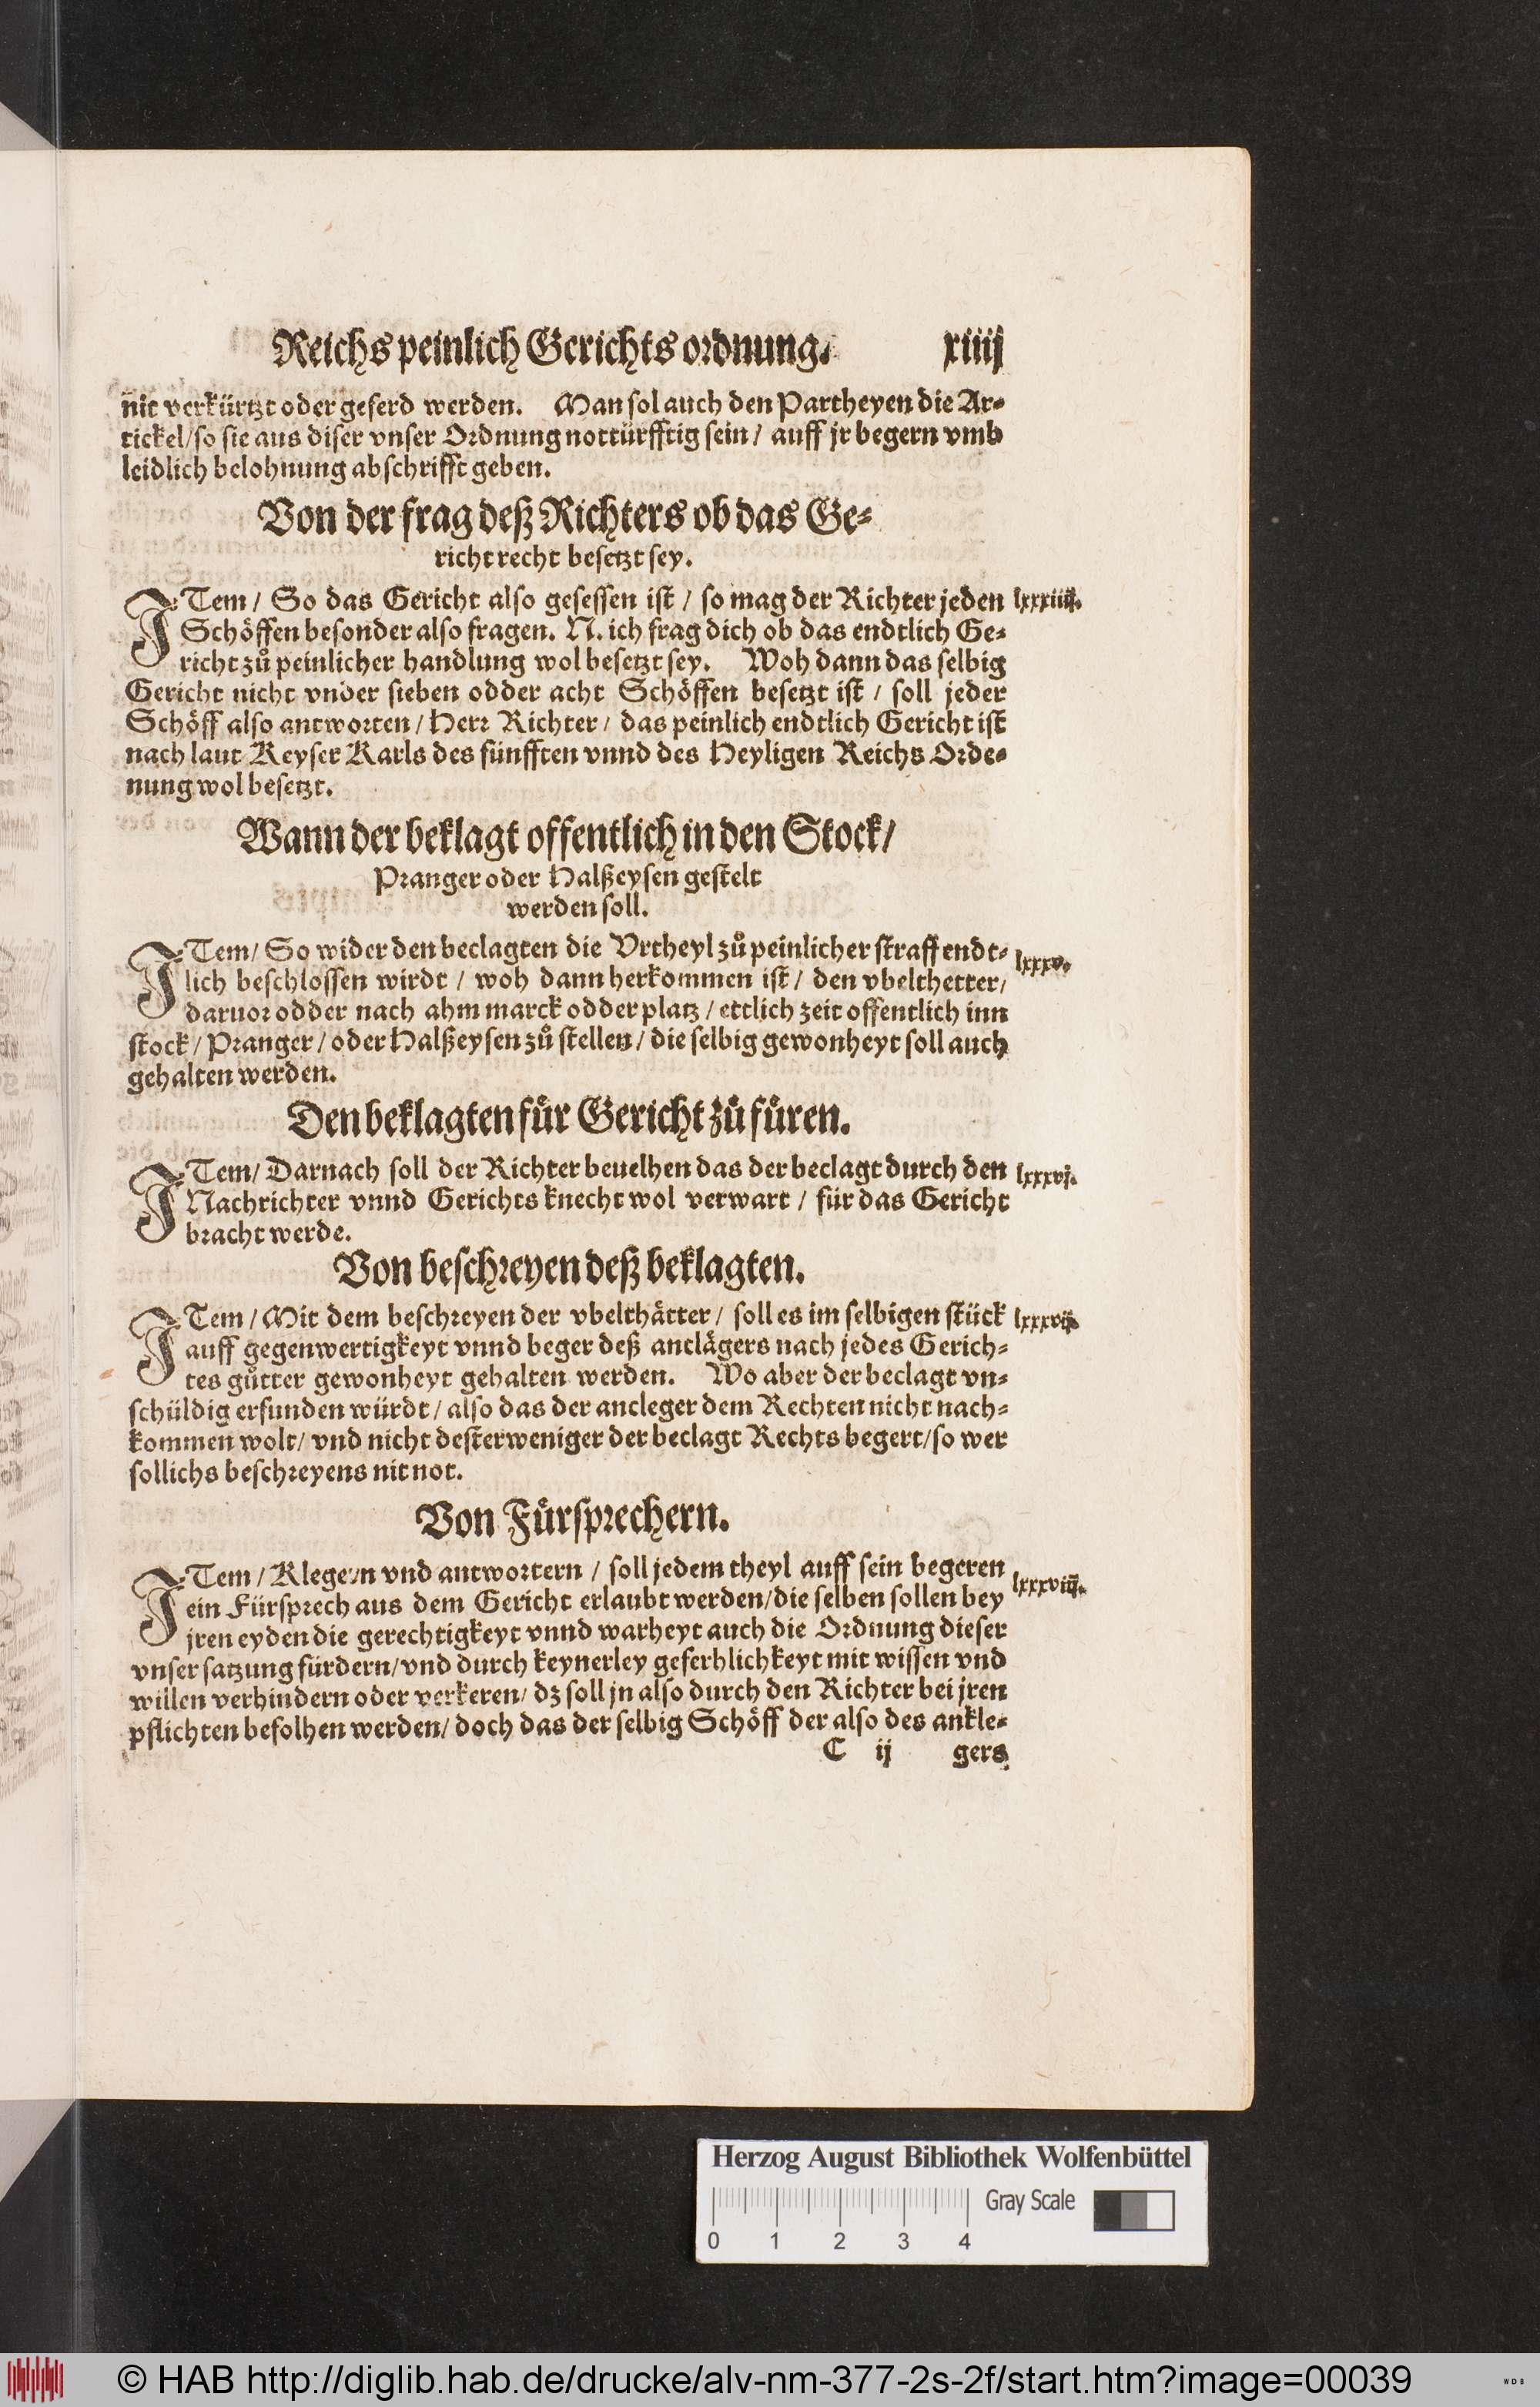 Reichs peinlich Gerichts ordnung. xiiij
nit verkürtzt oder geferd werden. Man sol auch den Partheyen die Ar⸗
tickel/ so sie aus diser vnser Ordnung nottürfftig sein/ auff jr begern vmb
leidlich belohnung abschrifft geben.
Von der frag deß Richters ob das Ge⸗
richt recht besetzt sey.
ITem/ So das Gericht also gesessen ist/ so mag der Richter jeden lxxxiiij.
Schöffen besonder also fragen. N. ich frag dich ob das endtlich Ge⸗
richt zů peinlicher handlung wol besetzt sey. Woh dann das selbig
Gericht nicht vnder sieben odder acht Schöffen besetzt ist/ soll jeder
Schöff also antworten/ Herr Richter/ das peinlich endtlich Gericht ist
nach laut Keyser Karls des fünfften vnnd des Heyligen Reichs Orde⸗
nung wol besetzt.
Wann der beklagt offentlich in den Stock/
Pranger oder Halßeysen gestelt
werden soll.
ITem/ So wider den beclagten die Vrtheyl zů peinlicher straff endt⸗ lxxxv.
lich beschlossen wirdt/ woh dann herkommen ist/ den vbelthetter/
daruor odder nach ahm marck odder platz/ ettlich zeit offentlich inn
stock/ Pranger/ oder Halßeysen zů stellen/ die selbig gewonheyt soll auch
gehalten werden.
Den beklagten für Gericht zů füren.
ITem/ Darnach soll der Richter beuelhen das der beclagt durch den lxxxvj.
Nachrichter vnnd Gerichts knecht wol verwart/ für das Gericht
bracht werde.
Von beschreyen deß beklagten.
ITem/ Mit dem beschreyen der vbelthätter/ soll es im selbigen stück lxxxvij.
auff gegenwertigkeyt vnnd beger deß anclägers nach jedes Gerich⸗
tes gůtter gewonheyt gehalten werden. Wo aber der beclagt vn⸗
schüldig erfunden würdt/ also das der ancleger dem Rechten nicht nach⸗
kommen wolt/ vnd nicht desterweniger der beclagt Rechts begert/ so wer
sollichs beschreyens nit not.
Von Fürsprechern.
ITem/ Klegern vnd antwortern/ soll jedem theyl auff sein begeren lxxxviij.
ein Fürsprech aus dem Gericht erlaubt werden/ die selben sollen bey
jren eyden die gerechtigkeyt vnnd warheyt auch die Ordnung dieser
vnser satzung fürdern/ vnd durch keynerley geferhlichkeyt mit wissen vnd
willen verhindern oder verkeren/ dz soll jn also durch den Richter bei jren
pflichten befolhen werden/ doch das der selbig Schöff der also des ankle⸗
C ij gers
Herzog August Bibliothek Wolfenbüttel
Gray Scale
0 1 2 3 4
© HAB http://diglib.hab.de/drucke/alv-nm-377-2s-2f/start.htm?image=00039
WDB